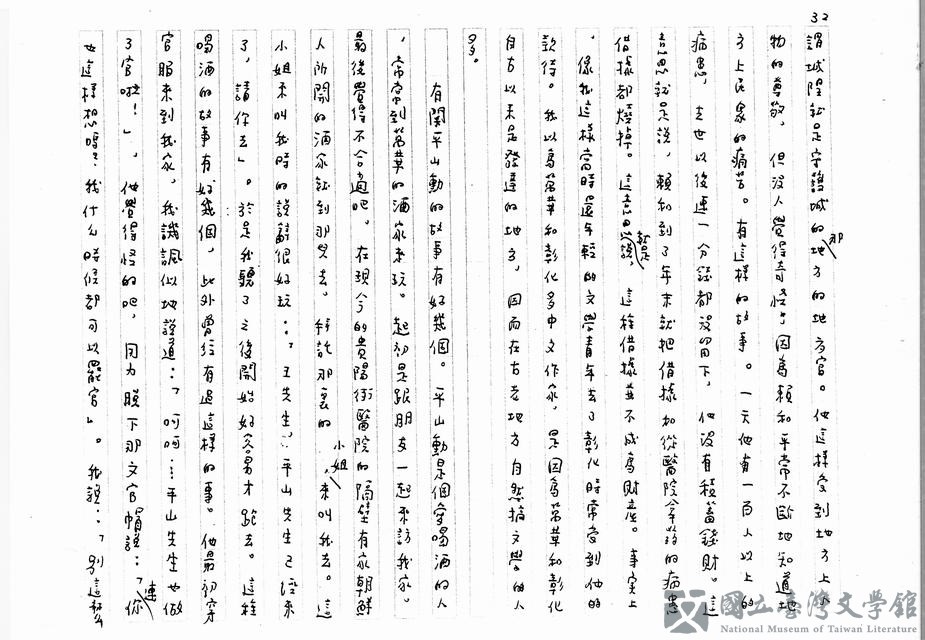 32
謂城隍就是守護城的那地方的地方官。他這樣受到地方上人
物的尊敬，但沒人覺得奇怪，因為賴和平常不斷地知道地
方上民眾的痛苦。有這樣的故事。一天他看一百人以上的
病患，去世以後連一分錢都沒留下，他沒有積蓄錢財。這
意思就是說，賴和到了年末就把借據如從醫院拿藥的病患
借據都燒掉。這意思就是說，這種借據並不成為財產。事實上
，像我這樣當時還年輕的文學青年去了彰化時常受到他的
款待。我以為萬華和彰化多中文作家，是因為萬華和彰化
自古以來是發達的地方，因而在古老地方自然搞文學的人
多。
有關平山勳的故事有好幾個。平山勳是個愛喝酒的人
，常常到萬華的酒家來玩。起初是跟朋友一起來訪我家。
最後覺得不合適吧。在現今的貴陽街醫院的隔壁有家朝鮮
人所開的酒家就到那兒去。拜託那裏的小姐，來叫我去。這
小姐來叫我時的說辭很好玩：「王先生，平山先生已經來
了，請你去」。於是我聽了之後開始好容易才跑去。這種
喝酒的故事有好幾個，此外曾經有過這樣的事。他最初穿
官服來到我家，我譏諷似地說道：「呵呵…平山先生也做
了官啦！」，他覺得怪的吧，同力脫下那文官帽說：「連你
也這樣想嗎？我什么時候都可以罷官」。我說：「別這麼
國立臺灣文學館
National Museum of Taiwan Literature